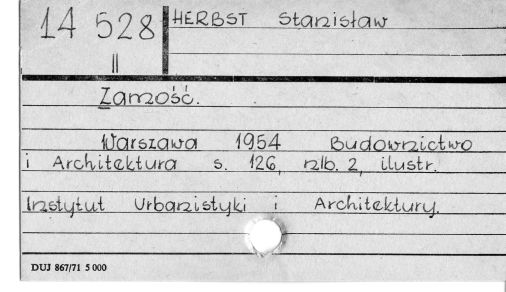 14 528
II
HERBST Stanisław
Zamość.
Warszawa 1954 Budownictwo
i Architektura s. 126, nlb. 2, ilustr.
Instytut Urbanistyki i Architektury.
DUJ 867/71 5 000